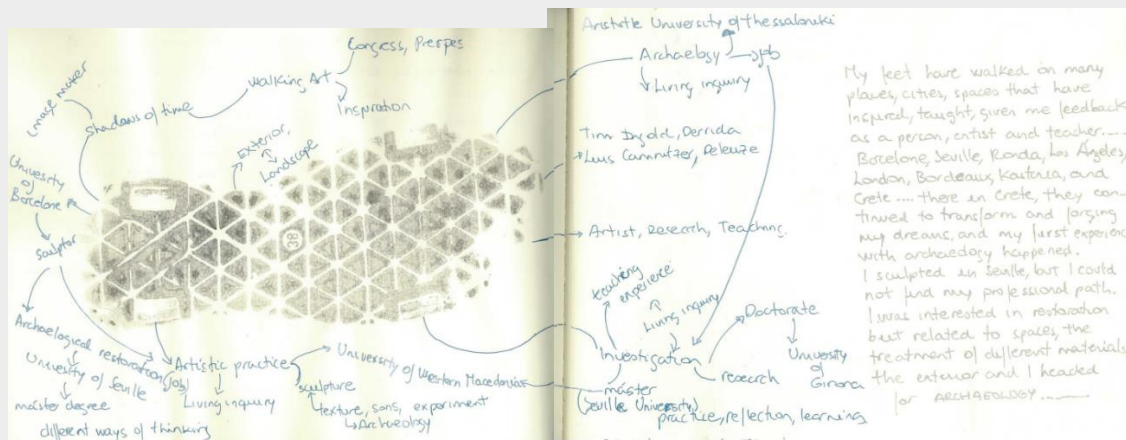 Congress, Prespes
Walking Art
Inspiration
Image maker
Shadows of time
Exterior,
Landscape
University
of
Barcelona
Sculptor
38
Archaelogical restoration (job)
University of Seville
máster degree
different ways of thinking
Artistic practice
Living inquiry
sculpture
texture, sons, experiment
Archaeology
University of Western Macedonia
Aristotle University of Thessaloniki
Archaelogy
job
Living inquiry
Tim Ingold, Derrida
Luis Camnitzer, Deleuze
Artist, Research, Teaching.
teaching
experience
Living inquiry
Investigation
Doctorate
University
of
Girona
research
máster
(Seville University)
practice, reflection, learning
My feet have walked on many
places, cities, spaces that have
inspired, taught, given me feedback
as a person, artist and teacher.....
Barcelone, Seville, Ronda, Los Ángeles,
London, Bordeaux, Kasteria, and
Crete .... there in Crete, they con-
tinued to transform and forging
my dreams, and my first experience
with archaedogy happened.
I sculpted in Seville, but I could
not find my professional path.
I was interested in restoration
but related to spaces, the
treatment of different materials
the exterior and I headed
for ARCHAEOLOGY........